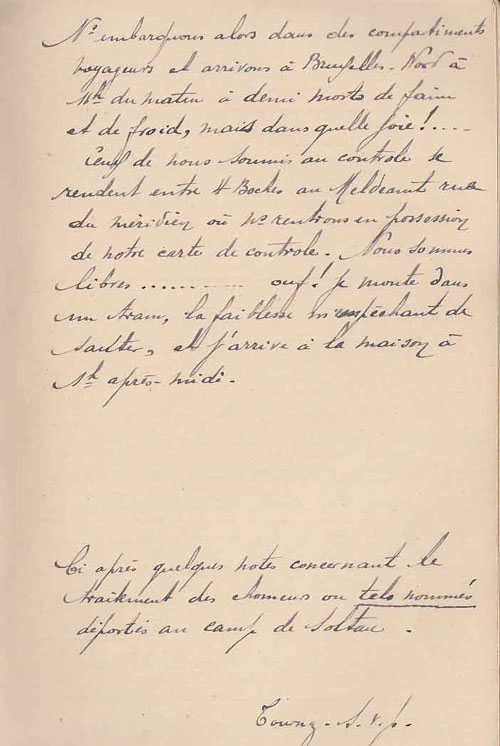 Ns embarquons alors dans des compartiments
voyageurs et arrivons à Bruxelles-Nord à
11h du matin à demi morts de faim
et de froid, mais dans quelle joie!.....
Ceux de nous soumis au controle se
rendent entre 4 Boches au Meldeamt rue
du méridien où ns rentrons en possession
de notre carte de controle. Nous sommes
libres ............ ouf! je monte dans
un tram, la faiblesse m'empêchant de
sauter, et j'arrive à la maison à
1h après-midi.
Ci après quelques notes concernant le
traitement des chomeurs ou tels nommés
déportés au camp de Soltau.
Tournez-S.v.p.